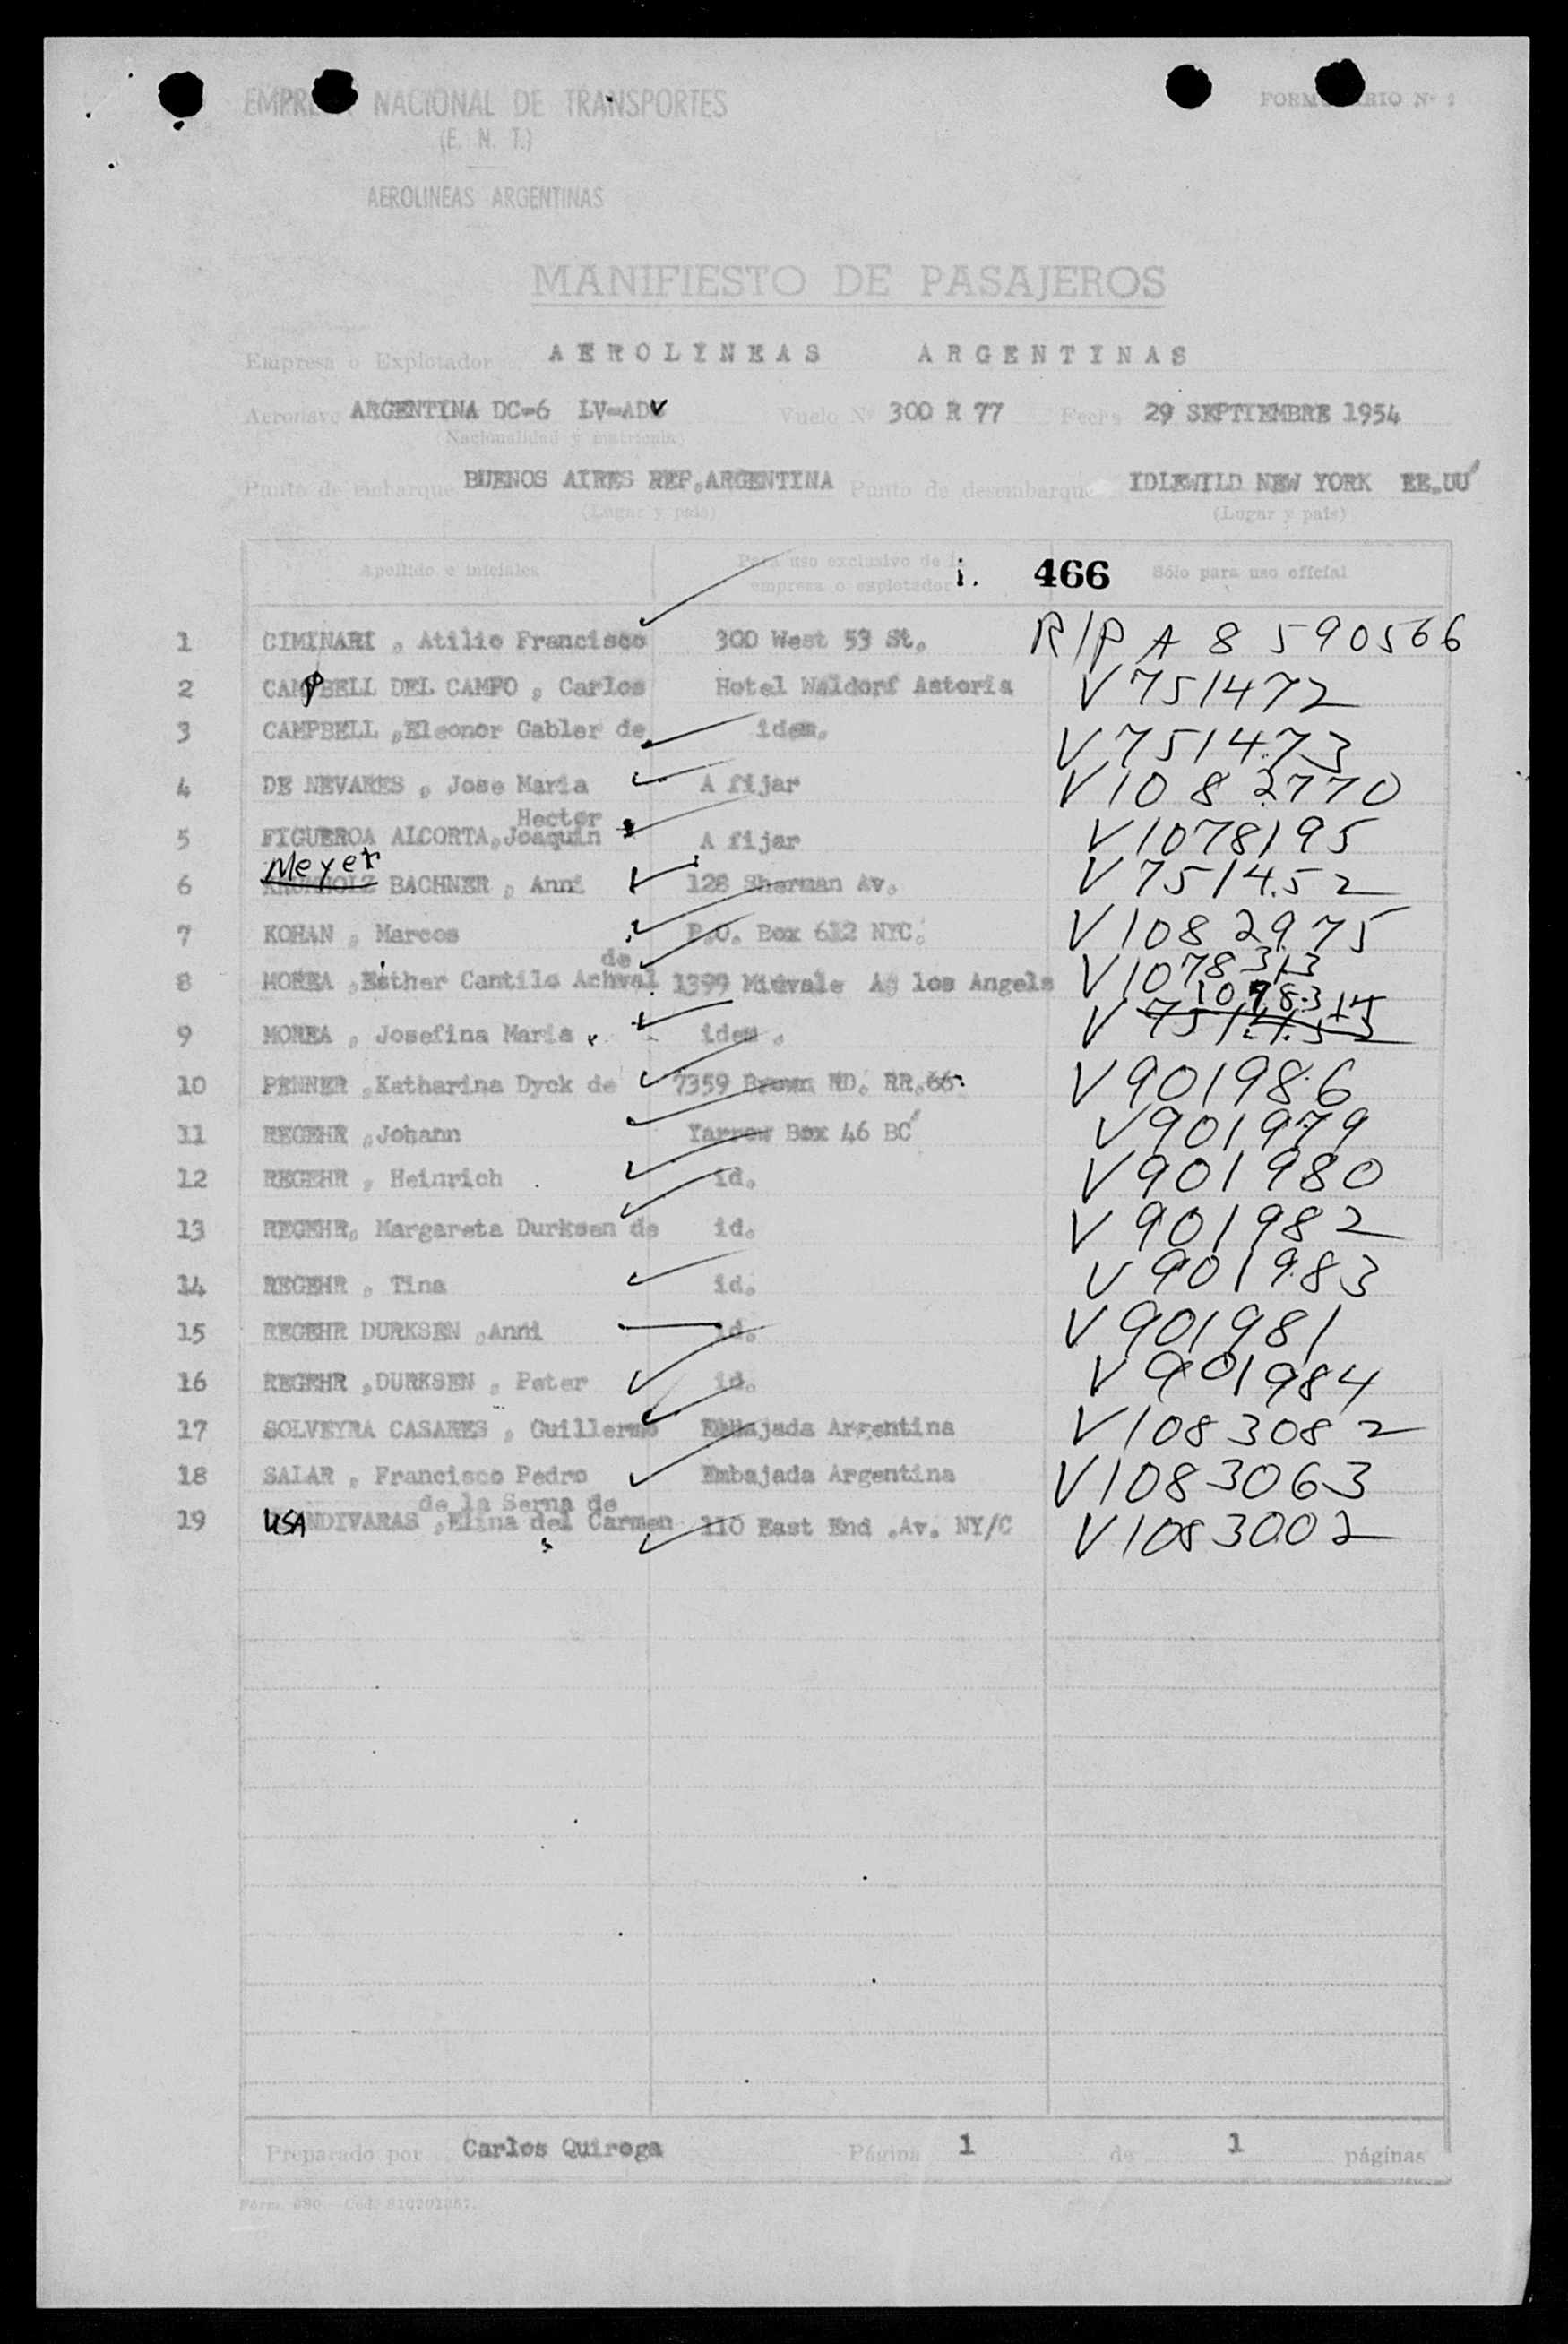 EMPRESA NACIONAL DE TRANSPORTES
FORMULARIO Nº 2
(E. N. T.)
AEROLINEAS ARGENTINAS
MANIFIESTO DE PASAJEROS
Empresa o Explotador AEROLINEAS ARGENTINAS
Aeronave ARGENTINA DC-6 LV-ADV Vuelo Nº 300 R 77 Fecha 29 SEPTIEMBRE 1954
(Nacionalidad y matrícula)
Punto de embarque BUENOS AIRES REP.ARGENTINA Punto de desembarque IDLEWILD NEW YORK EE.UU
(Lugar y país) (Lugar y país)
Apellido e iniciales Para uso exclusivo de la empresa o explotador i. 466 Sólo para uso official
1 CIMINARI , Atilio Francisco 300 West 53 St. R/P A 8 590566
2 CAMPBELL DEL CAMPO , Carlos Hotel Waldorf Astoria V751472
3 CAMPBELL ,Eleonor Gabler de idem. V751473
4 DE NEVARES , Jose Maria A fijar V1082770
Hector
5 FIGUEROA ALCORTA,Joaquin A fijar V1078195
Meyer
6 KRUMHOLZ BACHNER , Anni 128 Sherman Av. V751452
7 KOHAN , Marcos P.O. Box 612 NYC. V1082975
de
8 MOREA ,Esther Cantilo Achval 1399 Midvale Av los Angels V1078313
1078314
9 MOREA , Josefina Maria . idem . V 751453
10 PENNER ,Katharina Dyck de 7359 Brown RD. RR.66. V901986
11 REGEHR ,Johann Yarrow Box 46 BC V901979
12 REGEHR , Heinrich id. V901980
13 REGEHR, Margareta Durksen de id. V901982
14 REGEHR , Tina id. V901983
15 REGEHR DURKSEN ,Anni id. V901981
16 REGEHR ,DURKSEN , Peter id. V901984
17 SOLVEYRA CASARES , Guillermo Embajada Argentina V1083082
18 SALAR , Francisco Pedro Embajada Argentina V1083063
de la Serna de
19 USANDIVARAS ,Elina del Carmen 110 East End .Av. NY/C V1083002
Preparado por Carlos Quiroga Página 1 de 1 páginas